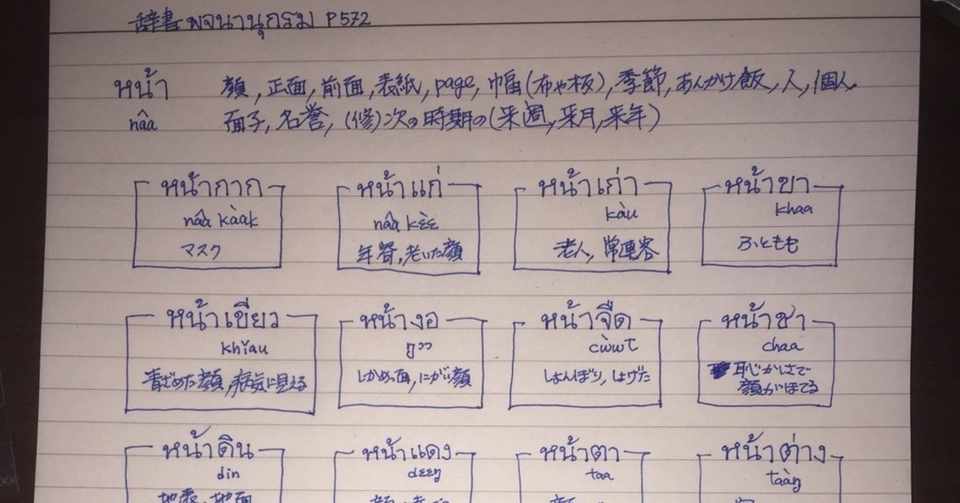 辞書 พจนานุกรม P572
หน้า 顔, 正面, 前面, 表紙, page, 巾幅(布や板), 季節, あんかけ飯, 人, 個人
nâa 面子, 名誉, (修)次の時期の(来週, 来月, 来年)
หน้ากาก หน้าแก่ หน้าเก่า หน้าขา
nâa kàak nâa kɛ̀ɛ kàu khaa
マスク 年番, 老いた顔 老人, 常連客 ふともも
หน้าเขียว หน้างอ หน้าจืด หน้าชา
khǐau ŋɔɔ cɯ̀ɯt chaa
青ざめた顔, 病気に見える しかめっ面, にがい顔 しょんぼり, しょげた 恥かしさで
顔がほてる
หน้าดิน หน้าแดง หน้าตา หน้าต่าง
din dɛɛŋ taa tàaŋ
地表, 地面